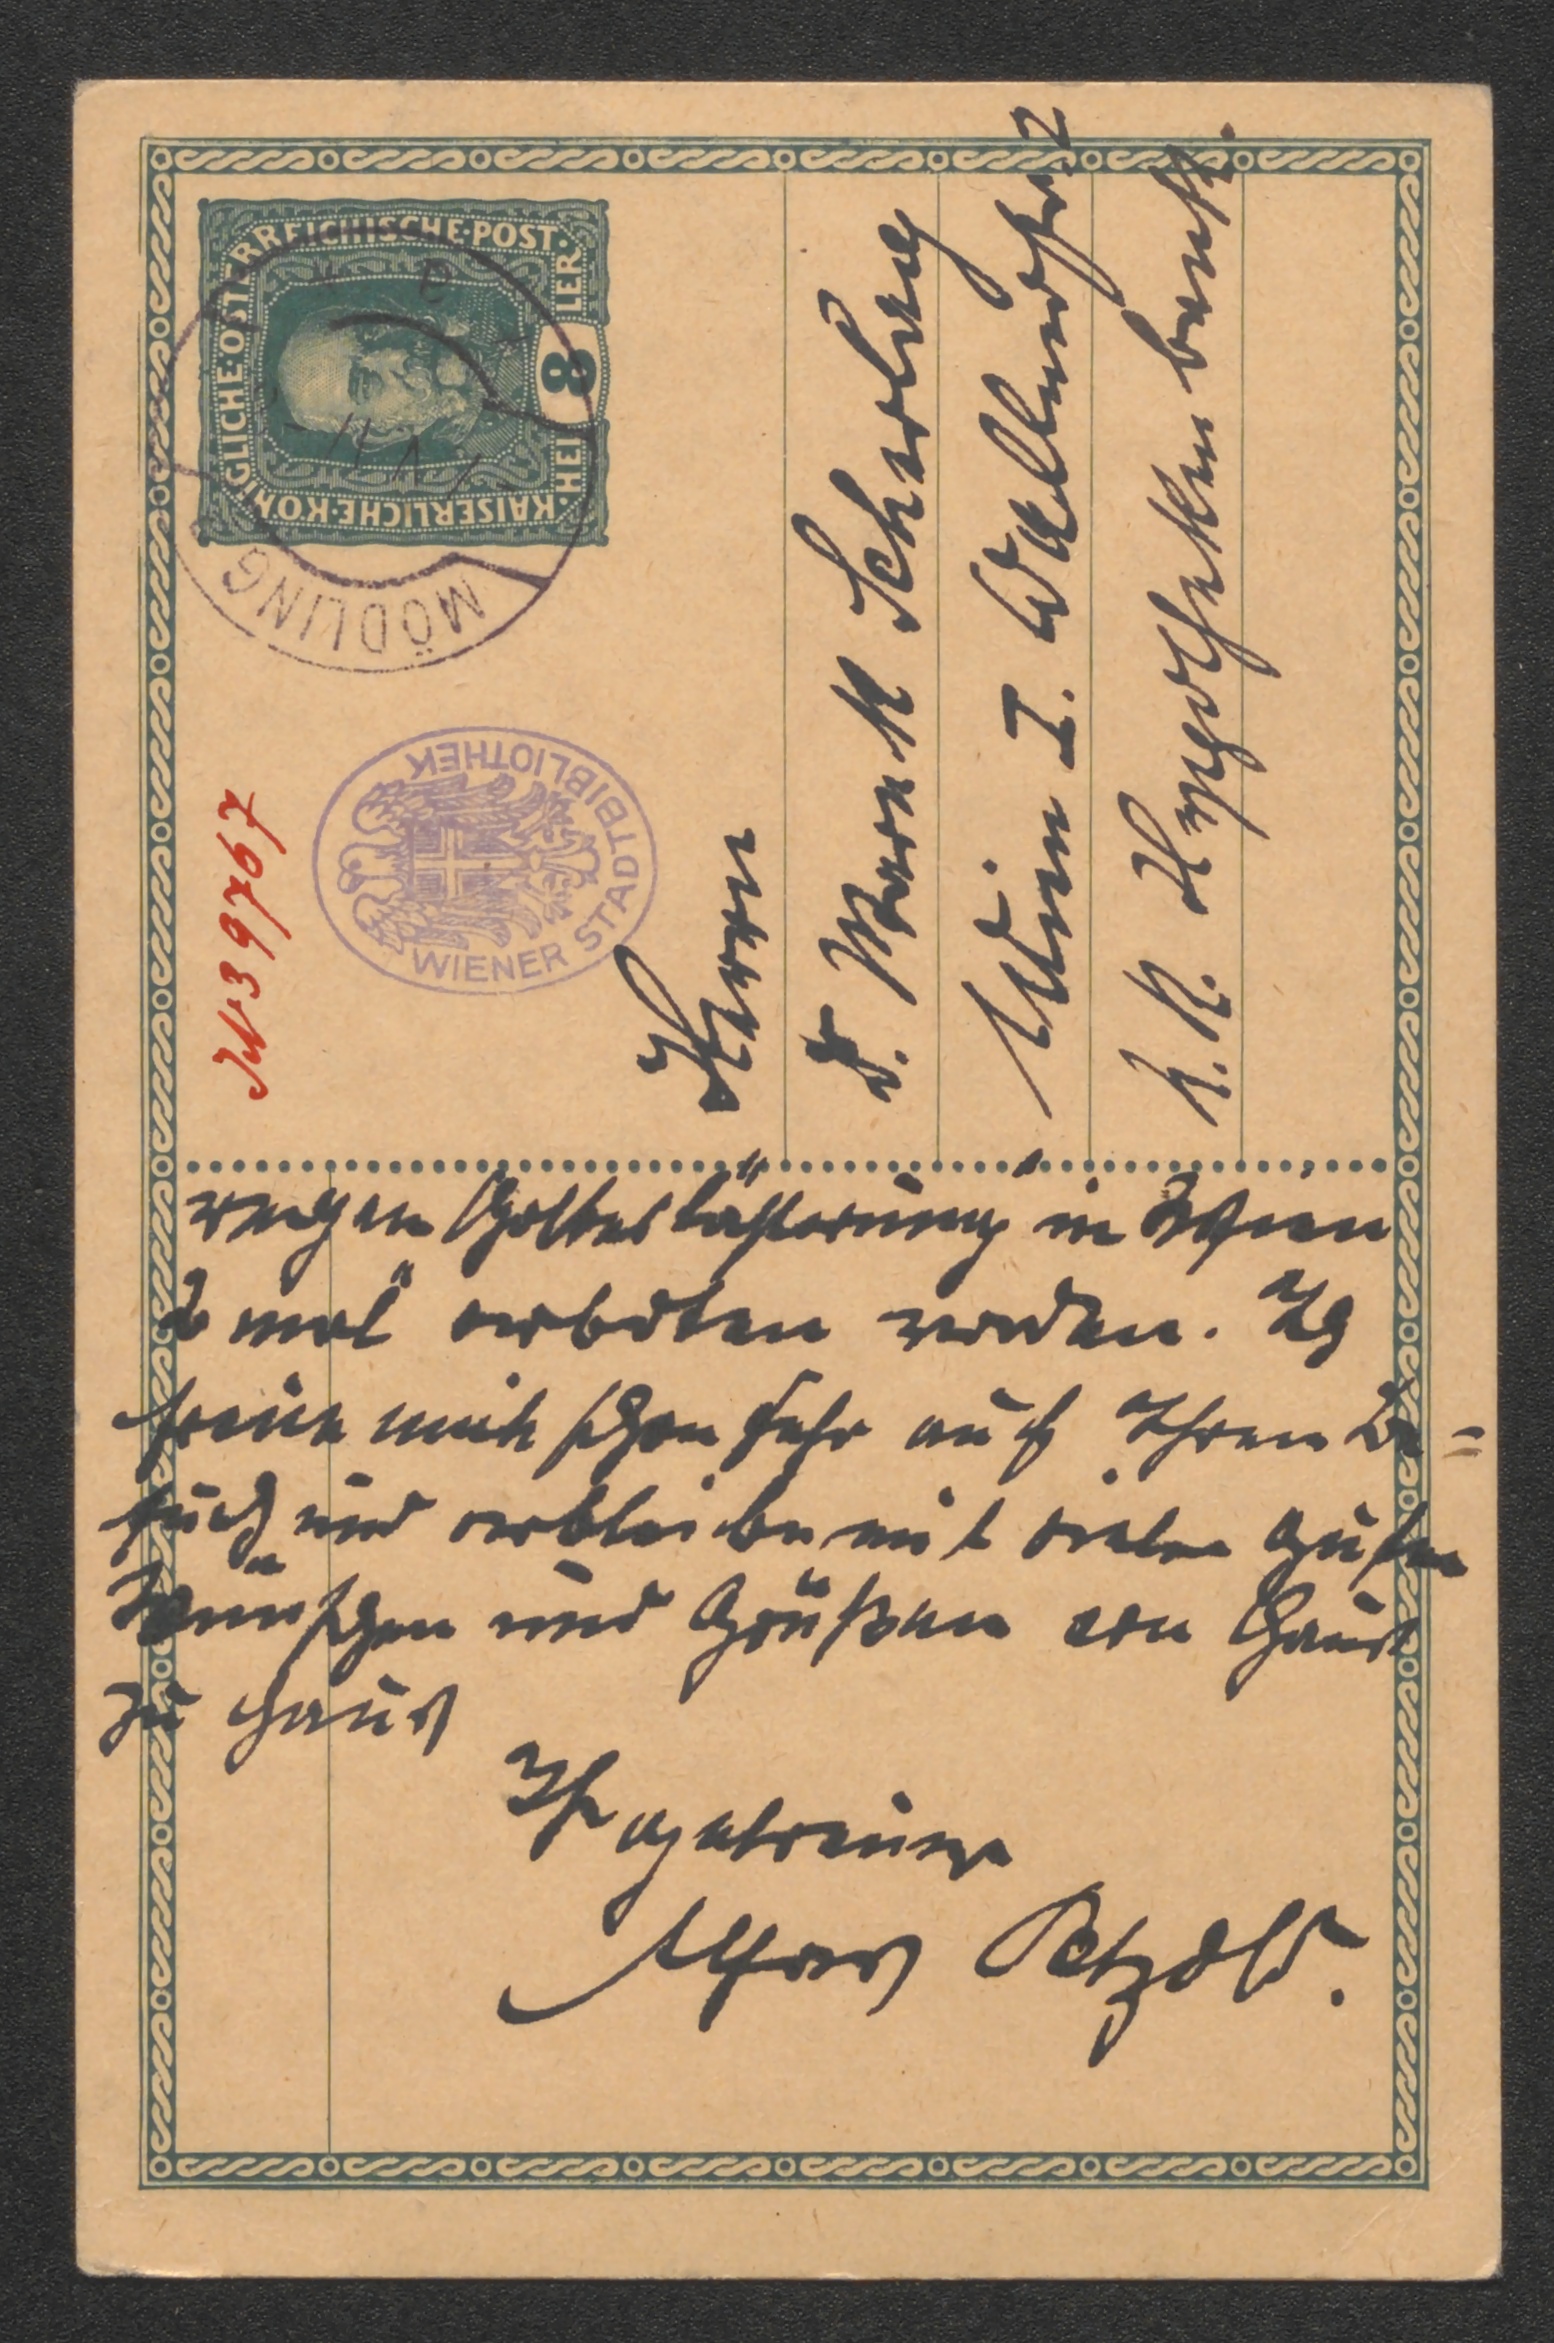 KAISERLICHE·KÖNIGLICHE·ÖSTERREICHISCHE·POST·
8
HEL LER
MÖDLING
WIENER STADTBIBLIOTHEK
Herrn
Scherlag
Wien I.
k. k. Hypothekenbank.
wegen Gotteslästerung in Wien
2 mal verboten worden. Ich
freue mich schon sehr auf Ihren Be=
such und verbleibe mit vielen guten
Wünschen und Grüßen von Haus
zu Haus
Ihr getreuer
Alfons Petzold.